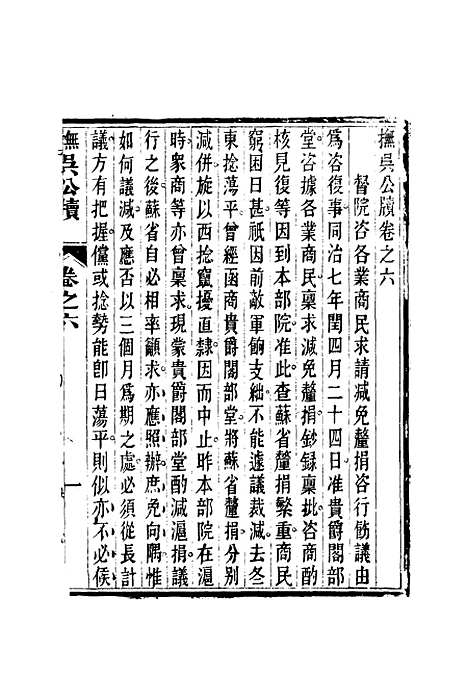 撫吳公牘卷之六
督院咨各業商民求請減免釐捐咨行飭議由
爲咨復事同治七年閏四月二十四日准貴爵閣部
堂咨據各業商民稟求減免釐捐鈔録稟批咨商酌
核見復等因到本部院准此查蘇省釐捐繁重商民
窮困日甚祇因前敵軍餉支絀不能遽議裁減去冬
東捻蕩平曾經函商貴爵閣部堂將蘇省釐捐分別
減併旋以西捻竄擾直隷因而中止昨本部院在滬
時衆商等亦曾稟求現蒙貴爵閣部堂酌減滬捐議
行之後蘇省自必相率籲求亦應照辦庶免向隅惟
如何議減及應否以三個月爲期之處必須從長計
議方有把握儻或捻勢能卽日蕩平則似亦不必候
撫吳公牘
卷之六
一